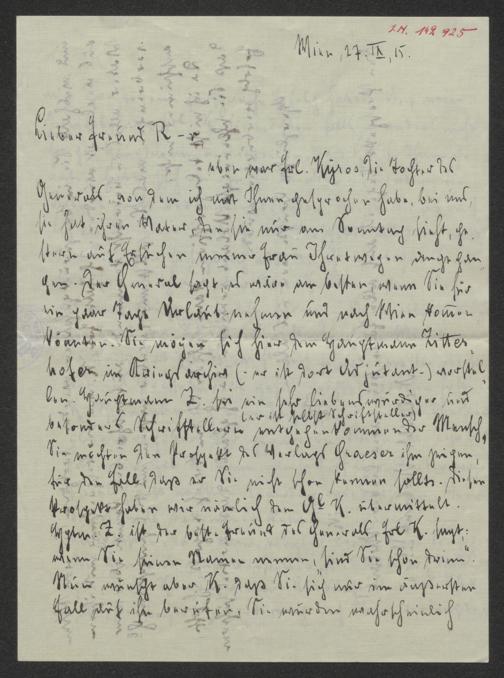 I.N. 142 925
Wien, 27. IX. 15.
Lieber Freund R-r
eben war Frl. Kyros die Tochter des
Generals, von dem ich mit Ihnen gesprochen habe, bei uns,
sie hat ihren Vater, den sie nur am Sonntag sieht, ge-
stern auf Ersuchen meiner Frau Ihretwegen angegan-
gen. Der General sagt, es wäre am besten, wenn Sie für
ein paar Tage Urlaub nehmen und nach Wien kommen
könnten. Sie mögen sich hier dem Hauptmann Zitter-
hofer im Kriegsarchiv (- er ist dort Adjutant -) vorstel-
len. Hauptmann Z. sei ein sehr liebenswürdiger und
(er ist selbst Schriftsteller)
besonders Schriftstellern entgegenkommender Mensch,
Sie möchten den Prospekt des Verlags Graeser ihm zeigen,
für den Fall, daß er Sie nicht schon kennen sollte. Diesen
Prospekt haben wir nämlich dem G. K. übermittelt.
Hptm. Z. ist der beste Freund des Generals, Frl. K. sagt:
wenn Sie seinen Namen nennen, "sind Sie schon drin".
Nun wünscht aber K. daß Sie sich nur im äußersten
Fall auf ihn berufen. Sie würden wahrscheinlich